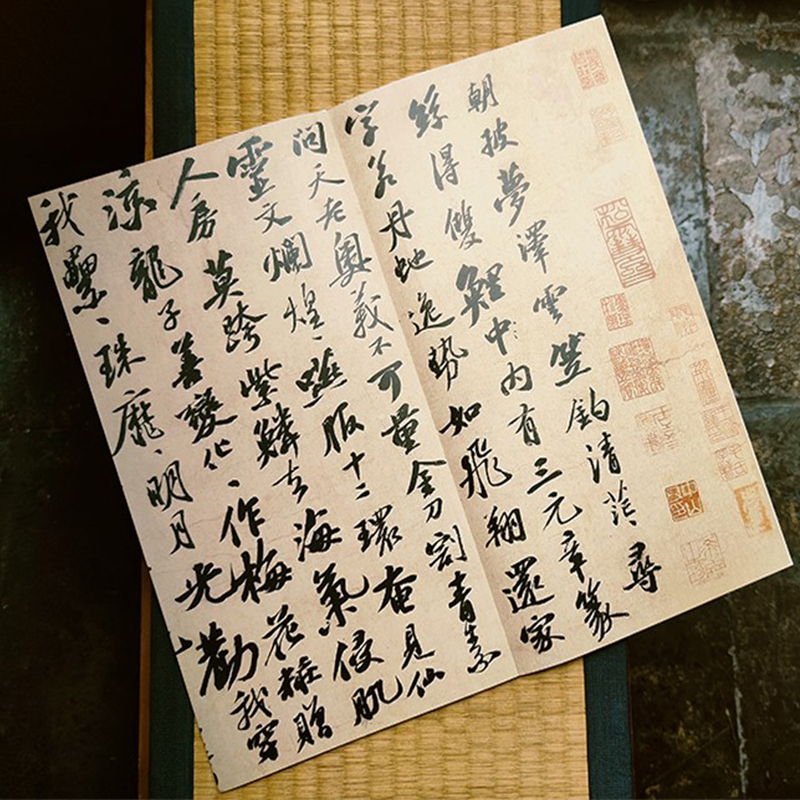 朝披夢澤雲笠釣清茫〻尋
絲得雙鯉中內有三元章篆
字若丹蛇逸勢如飛翔還家
問天老奧義不可量金刀割青素
靈文爛煌〻嚥服十二環奄見仙
人房莫跨紫鱗去海氣侵肌
涼龍子善變化〻作梅花粧贈
我纍〻珠靡〻明月光勸我穿